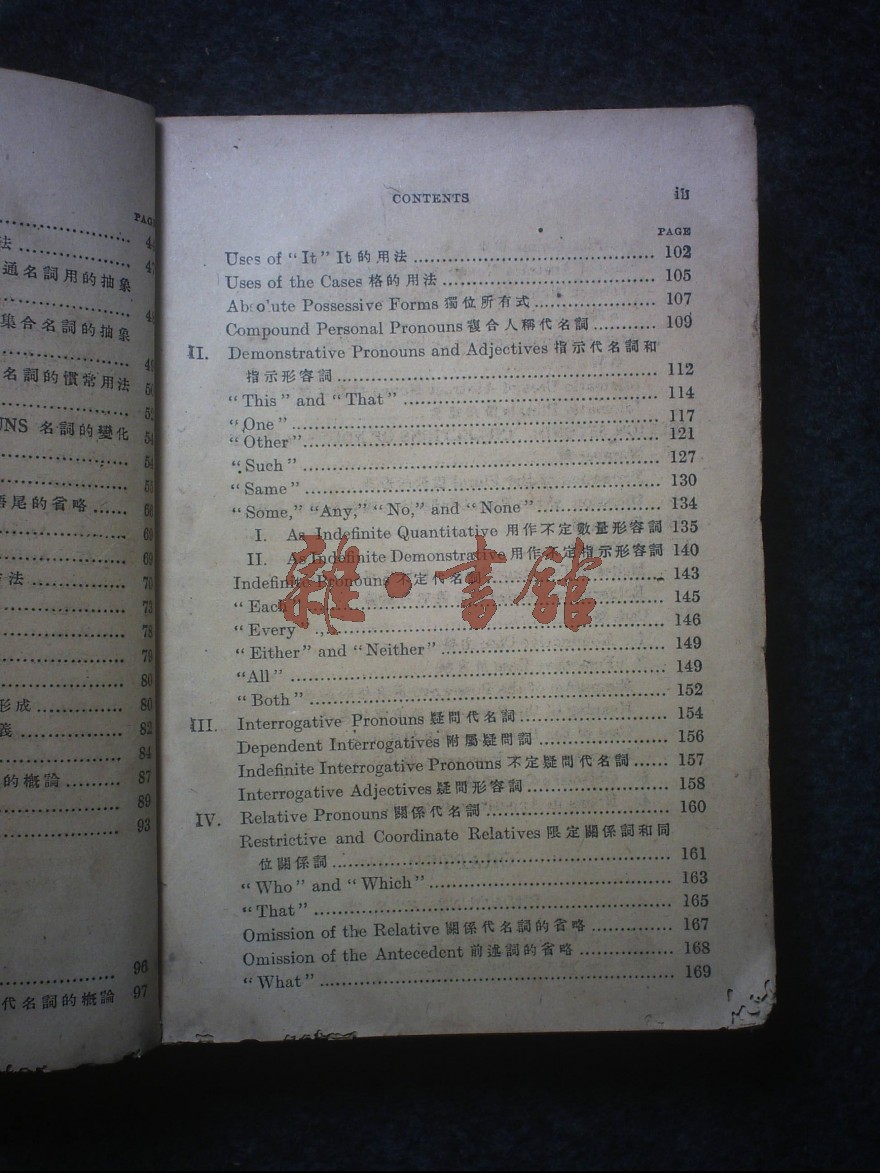 PAGE
法
47
通名詞用的抽象
集合名詞的抽象
名詞的慣常用法 50
52
UNS 名詞的變化 54
54
語尾的省略 ...... 66
69
69
70
73
78
79
80
形成 ............... 80
義 .................. 82
84
的槪論 ......... 87
89
93
96
代名詞的槪論 97
CONTENTS iii
PAGE
Uses of “It” It 的用法 ........................................ 102
Uses of the Cases 格的用法 ................................... 105
Absolute Possessive Forms 獨位所有式 .................... 107
Compound Personal Pronouns 複合人稱代名詞 ........... 109
II. Demonstrative Pronouns and Adjectives 指示代名詞和
指示形容詞 ..................................................... 112
“This” and “That” .......................................... 114
“One” ............................................................ 117
“Other” .......................................................... 121
“Such” ........................................................... 127
“Same” .......................................................... 130
“Some,” “Any,” “No,” and “None” ..................... 134
I. As Indefinite Quantitative 用作不定數量形容詞 135
II. As Indefinite Demonstrative 用作不定指示形容詞 140
Indefinite Pronouns 不定代名詞 ............................. 143
“Each” ........................................................... 145
“Every” .......................................................... 146
“Either” and “Neither” ..................................... 149
“All” .............................................................. 149
“Both” ........................................................... 152
III. Interrogative Pronouns 疑問代名詞 ........................ 154
Dependent Interrogatives 附屬疑問詞 ..................... 156
Indefinite Interrogative Pronouns 不定疑問代名詞 ...... 157
Interrogative Adjectives 疑問形容詞 ....................... 158
IV. Relative Pronouns 關係代名詞 .............................. 160
Restrictive and Coordinate Relatives 限定關係詞和同
位關係詞 ....................................................... 161
“Who” and “Which” ........................................ 163
“That” ........................................................... 165
Omission of the Relative 關係代名詞的省略 .............. 167
Omission of the Antecedent 前述詞的省略 ............... 168
“What” .......................................................... 169
雜·書館